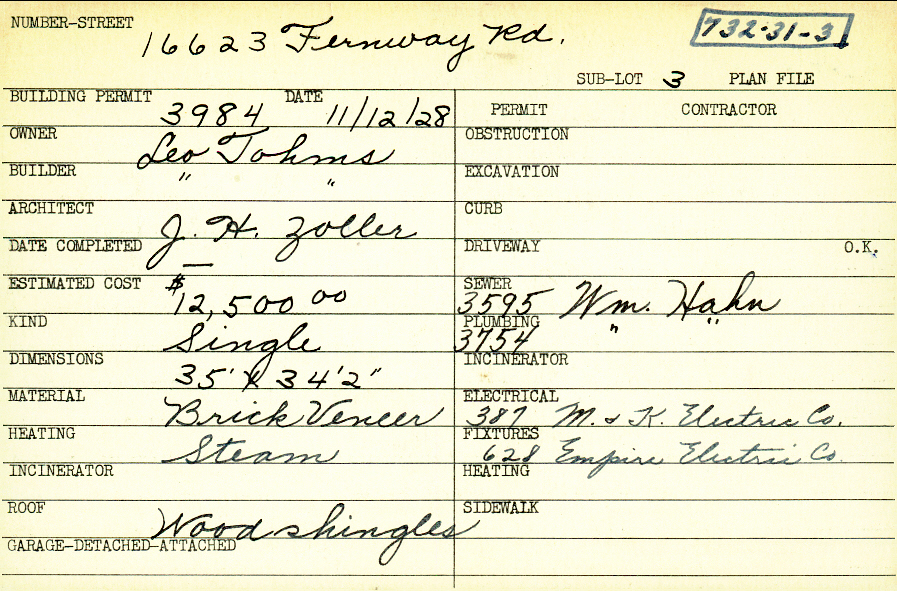 NUMBER-STREET 16623 Fernway Rd. 732-31-3
SUB-LOT 3 PLAN FILE
BUILDING PERMIT 3984 DATE 11/12/28
OWNER Leo Tohms
BUILDER " "
ARCHITECT J. H. Zoller
DATE COMPLETED —
ESTIMATED COST $12,500 00
KIND Single
DIMENSIONS 35' x 34'2"
MATERIAL Brick Veneer
HEATING Steam
INCINERATOR
ROOF Wood shingles
GARAGE-DETACHED-ATTACHED
PERMIT CONTRACTOR
OBSTRUCTION
EXCAVATION
CURB
DRIVEWAY O.K.
SEWER 3595 Wm. Hahn
PLUMBING 3754 " "
INCINERATOR
ELECTRICAL 387 M. & K. Electric Co.
FIXTURES 628 Empire Electric Co.
HEATING
SIDEWALK